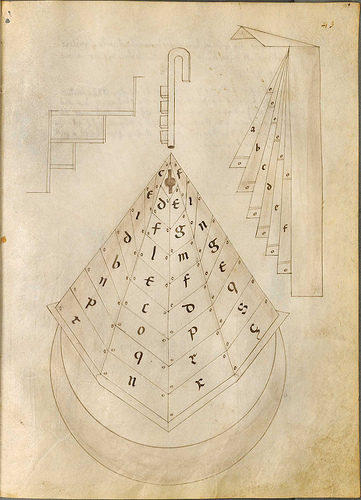 43
a
b
c
d
e
f
c f
e d e i
l f g n
d l m g
b e f e
n c d q
p o p s
t q r
u x